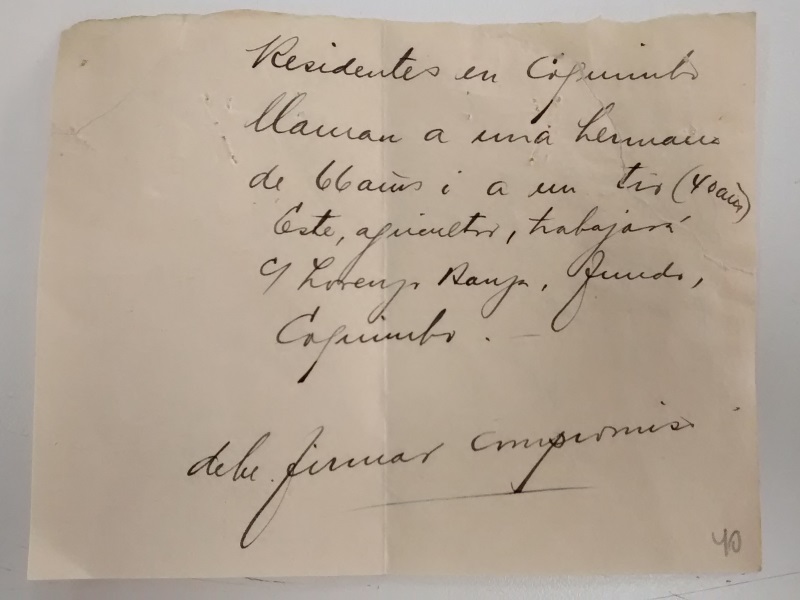 Residentes en Coquimbo
llaman a una hermana
de 66 años i a un tío (40 años)
Este, agricultor, trabajará
c/ Lorenzo Banza, fundo,
Coquimbo. —
debe firmar compromiso
40